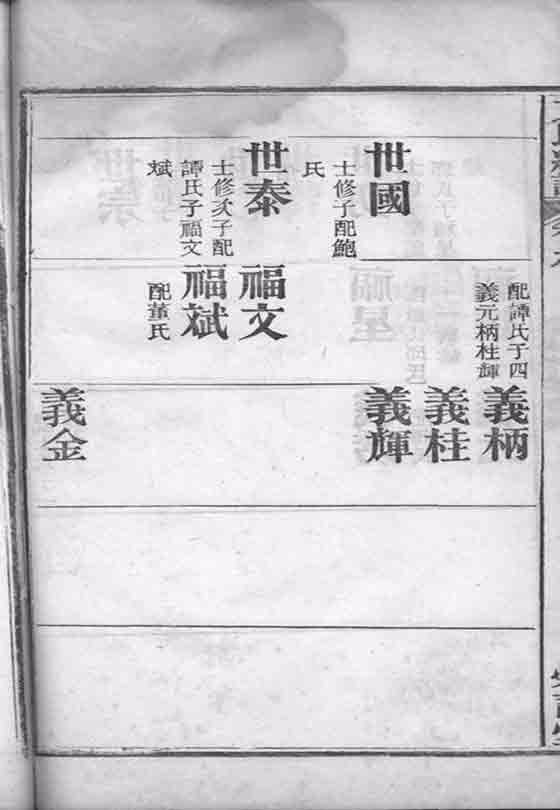 世國
士修子配鮑
氏
世泰
士修次子配
譚氏子福文
斌
配譚氏子四
義元柄桂輝
福文
福斌
配董氏
義柄
義桂
義輝
義金